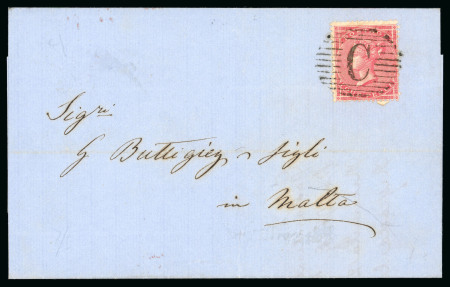 C
Sigri
G Buttigieg e figli
in Malta